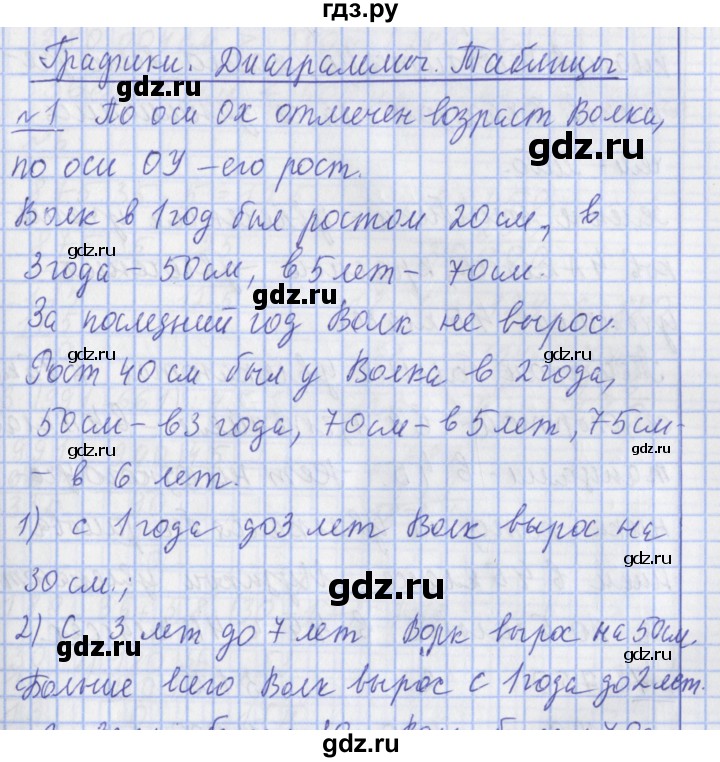 гдз.ру
Графики. Диаграммы. Таблицы
gdz.ru
gdz.ru
№1 По оси Ох отмечен возраст Волка,
gdz.ru
по оси ОУ – его рост.
Волк в 1 год был ростом 20 см, в
gdz.ru
gdz.ru
3 года – 50 см, в 5 лет – 70 см.
gdz.ru
За последний год Волк не вырос.
gdz.ru
gdz.ru
Рост 40 см был у Волка в 2 года,
50 см – в 3 года, 70 см – в 5 лет, 75 см –
gdz.ru
gdz.ru
– в 6 лет.
1) с 1 года до 3 лет Волк вырос на
gdz.ru
gdz.ru
30 см.;
gdz.ru
2) С 3 лет до 7 лет Ворк вырос на 50 см.
gdz.ru
gdz.ru
Больше всего Волк вырос с 1 года до 2 лет.
gdz.ru
gdz.ru